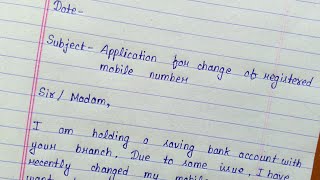 Date-
Subject- Application for change of registered
mobile number
Sir/ Madam,
I am holding a saving bank account with
your branch. Due to some issue, I have
recently changed my mobile